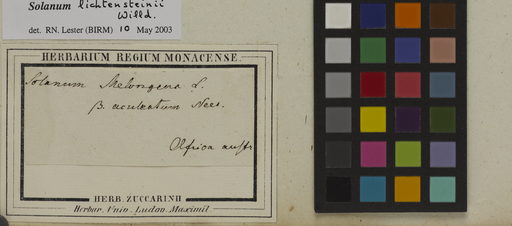 Solanum lichtensteinii
Willd.
det. RN. Lester (BIRM) 10 May 2003
HERBARIUM REGIUM MONACENSE.
Solanum Melongena L.
β. aculeatum Nees.
Africa austr
HERB. ZUCCARINII
Herbar. Univ. Ludov. Maximil.